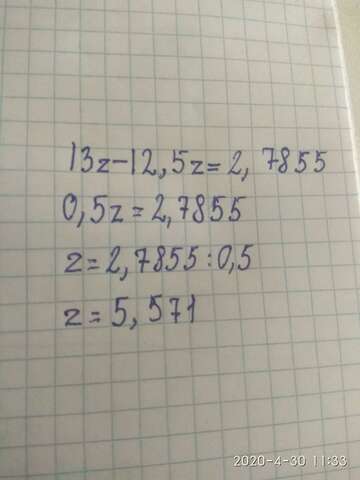 13z-12,5z=2,7855
0,5z=2,7855
z=2,7855:0,5
z=5,571
2020-4-30 11:33